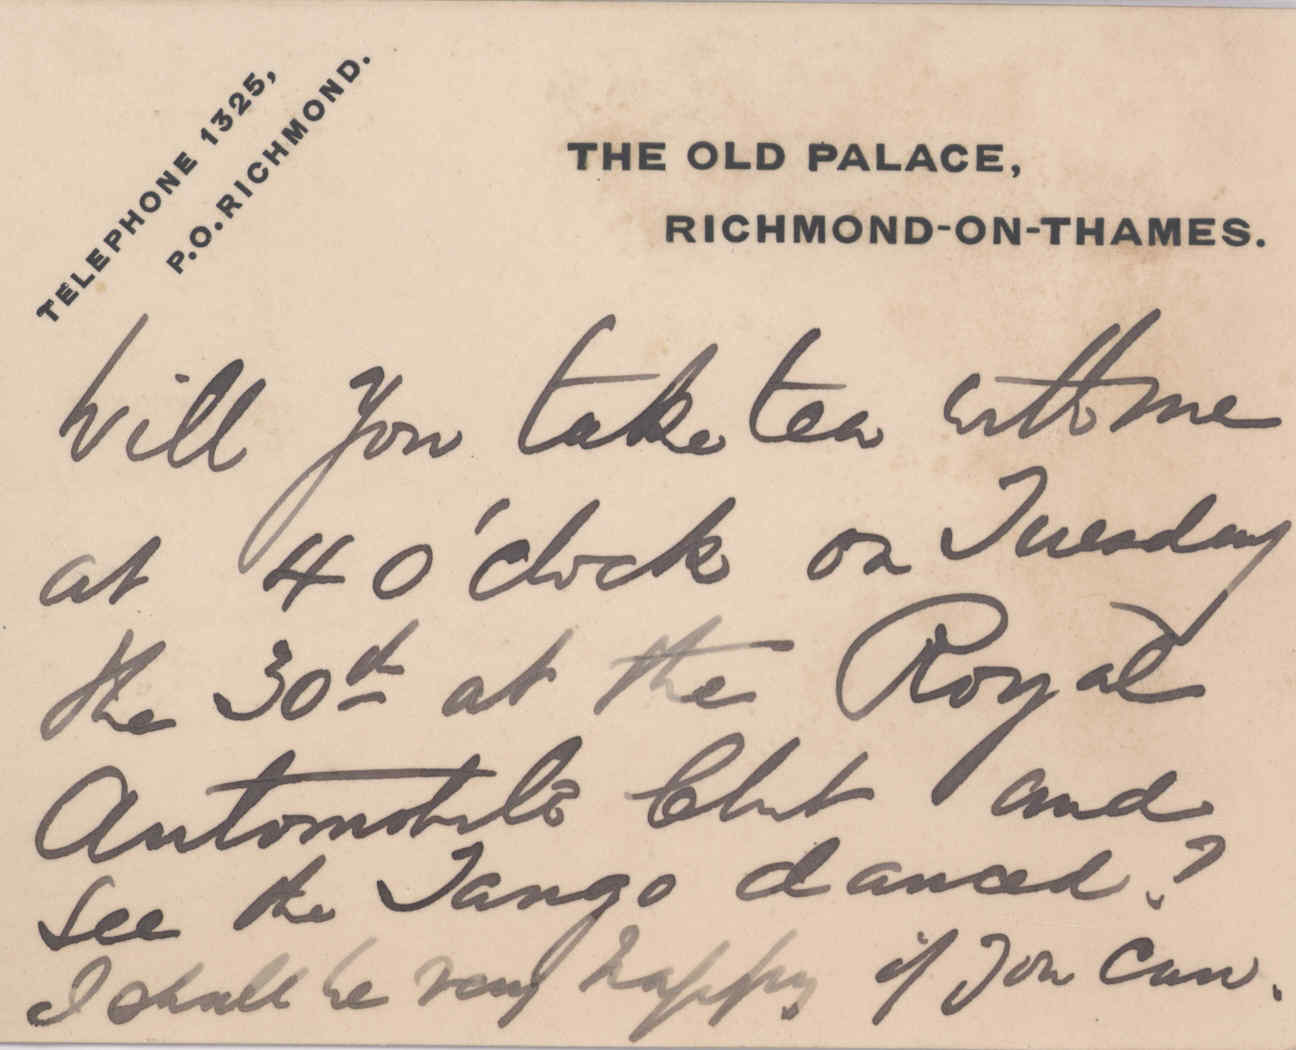 TELEPHONE 1325,
P.O. RICHMOND.
THE OLD PALACE,
RICHMOND-ON-THAMES.
Will you take tea with me
at 4 O'clock on Tuesday
the 30th at the Royal
Automobile Club and
see the Tango danced?
I shall be very happy if you can.